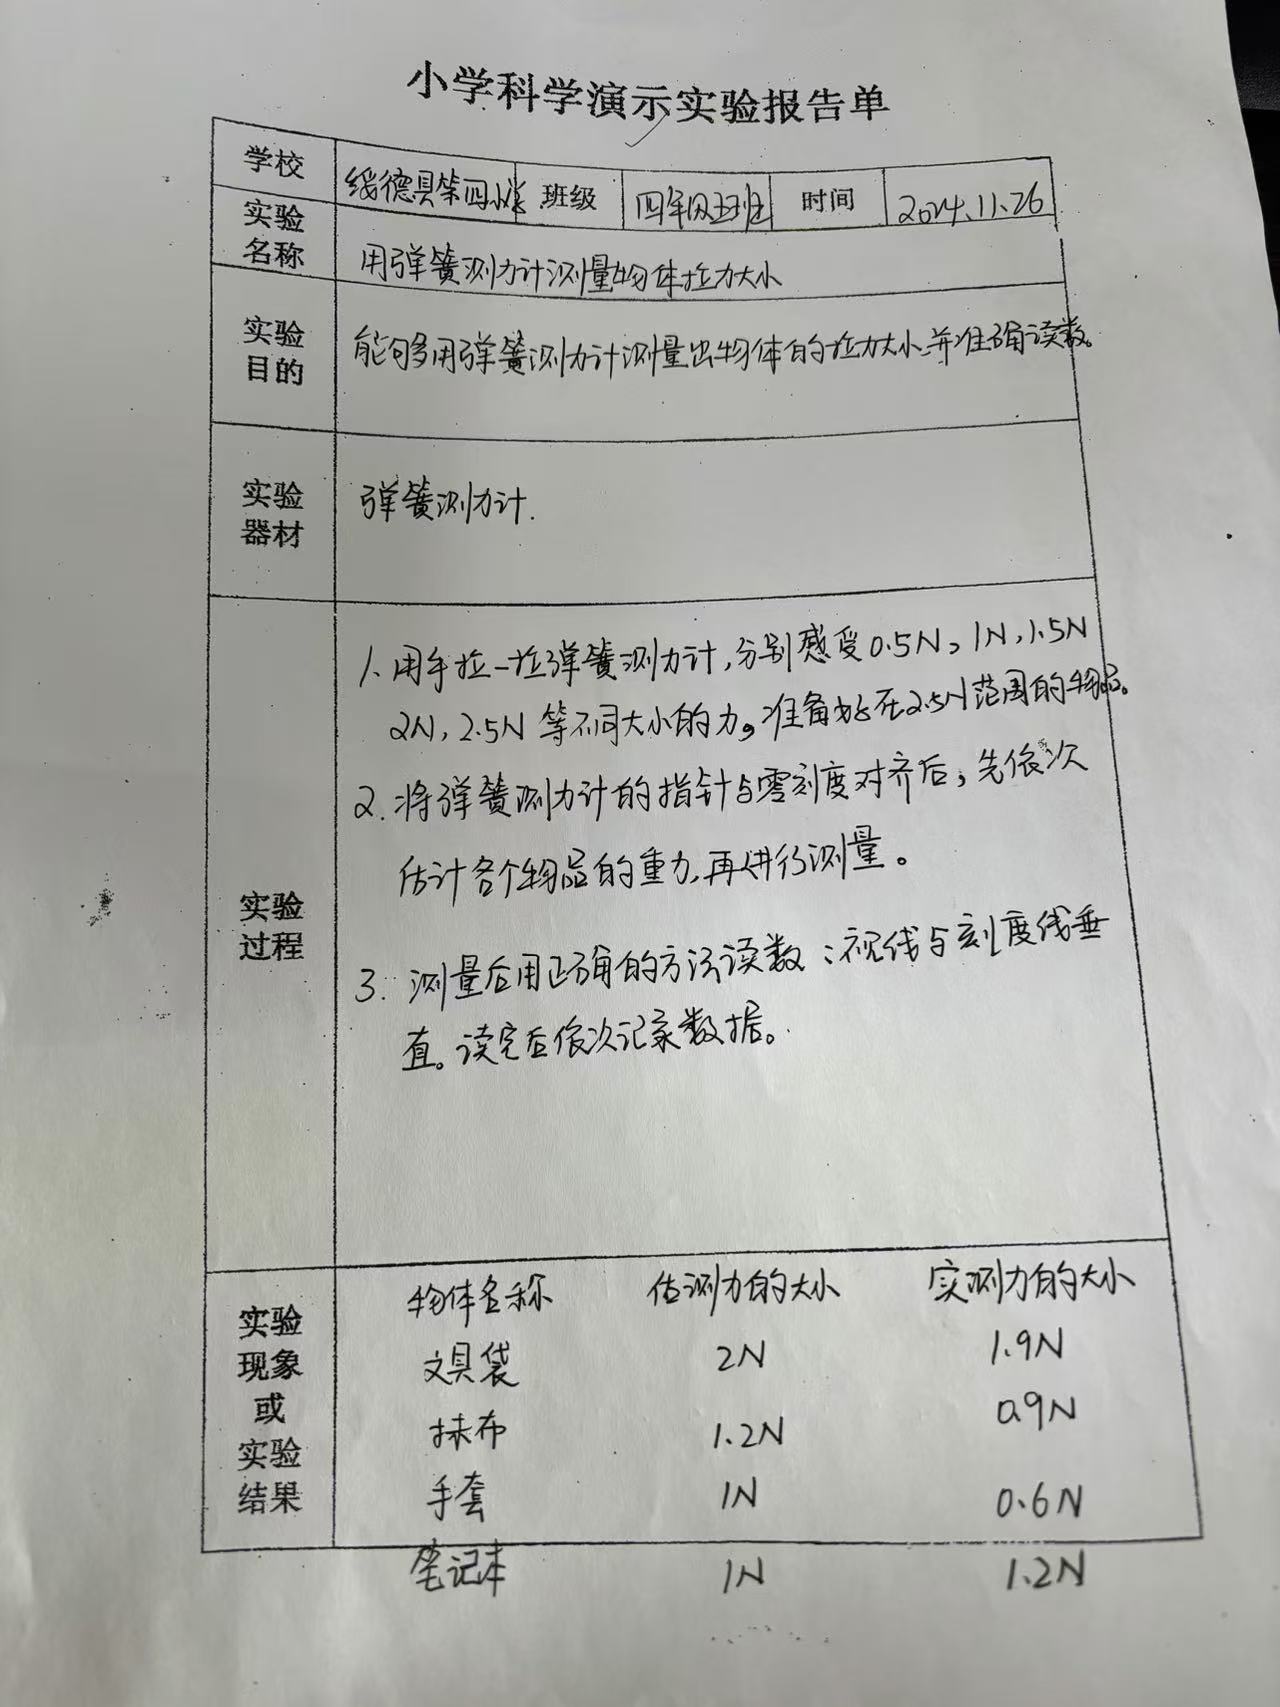 小学科学演示实验报告单
学校 绥德县第四小学 班级 四年级五班 时间 2024.11.26
实验名称 用弹簧测力计测量物体拉力大小
实验目的 能够用弹簧测力计测量出物体的拉力大小.并准确读数。
实验器材 弹簧测力计.
实验过程
1. 用手拉一拉弹簧测力计,分别感受0.5N,1N,1.5N
2N,2.5N 等不同大小的力。准备好在2.5N范围的物品。
2. 将弹簧测力计的指针与零刻度对齐后,先依次
估计各个物品的重力,再进行测量。
3. 测量后用正确的方法读数:视线与刻度线垂
直。读完后依次记录数据。
实验现象或实验结果
物体名称 估测力的大小 实测力的大小
文具袋 2N 1.9N
抹布 1.2N 0.9N
手套 1N 0.6N
笔记本 1N 1.2N